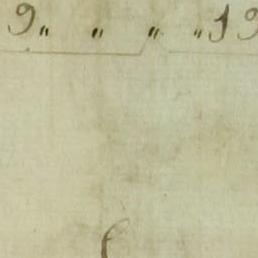 9 „ „ „ „ 19